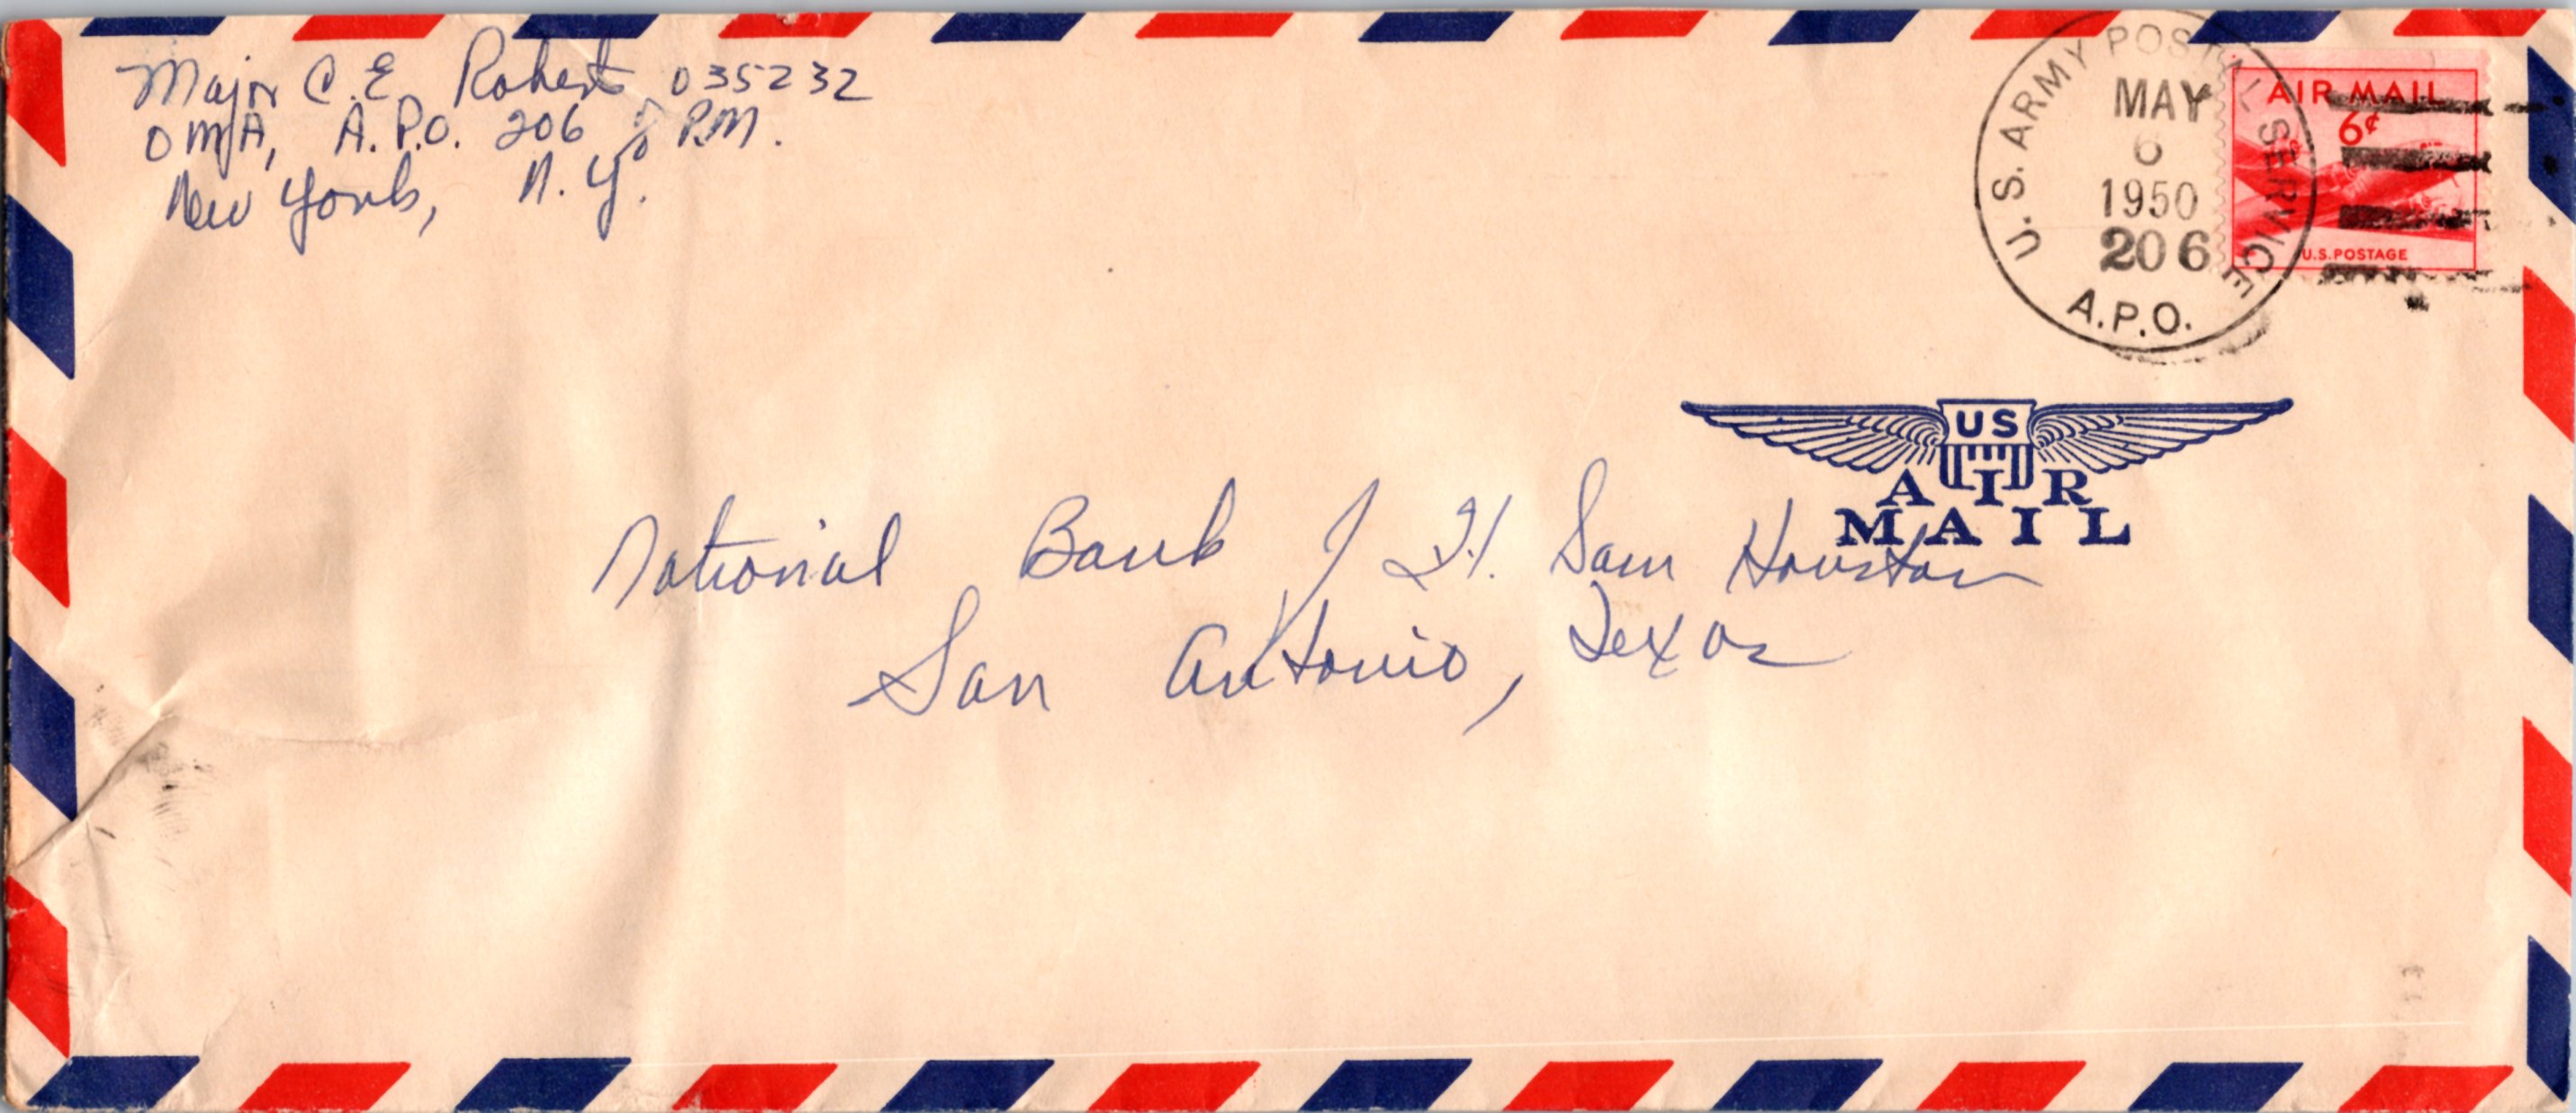 Major C. E. Roberts 035232
OMA, A.P.O. 206 % P.M.
New York, N.Y.
U.S. ARMY POSTAL SERVICE
MAY
6
1950
206
A.P.O.
AIR MAIL
6¢
U.S. POSTAGE
US
AIR
MAIL
National Bank of Ft. Sam Houston
San Antonio, Texas